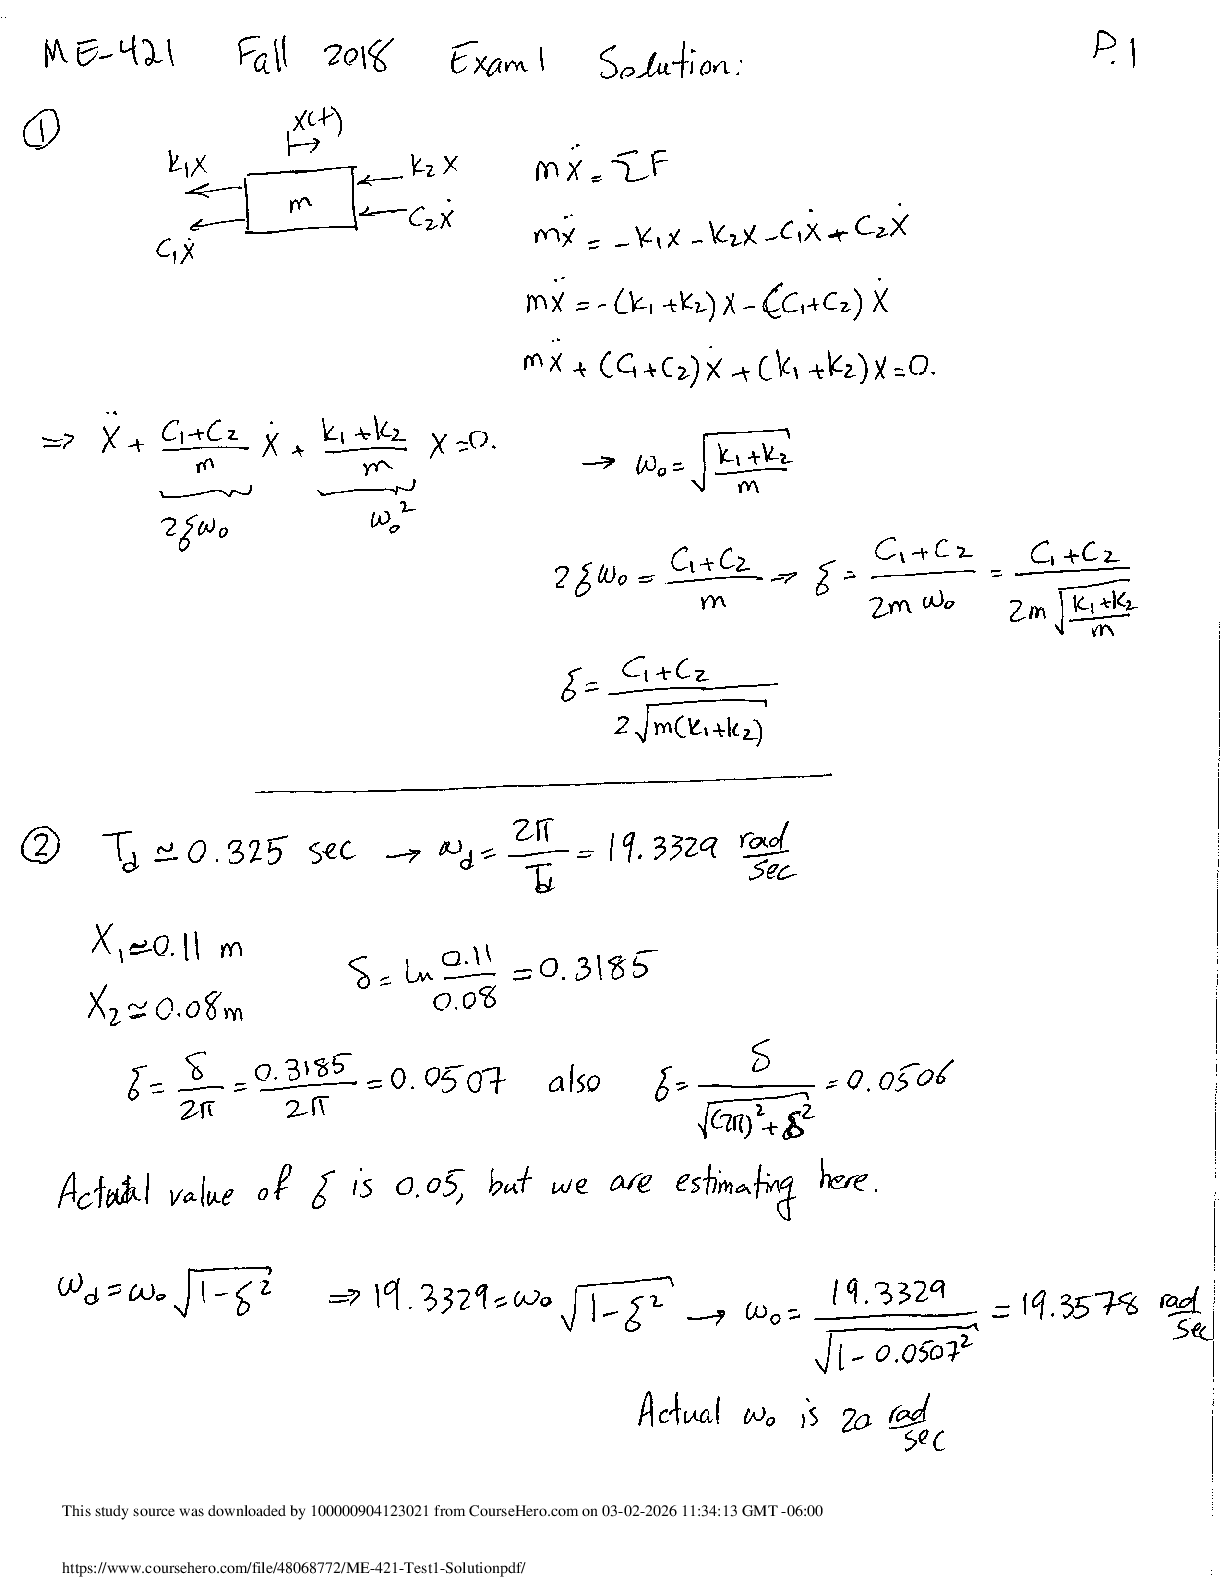 ME-421 Fall 2018 Exam 1 Solution: P.1
①
x(t)
k₁x
k₂x
m
c₁ẋ
c₂ẋ
mẍ = ΣF
mẍ = -k₁x - k₂x - c₁ẋ + c₂ẋ
mẍ = -(k₁+k₂)x - (c₁+c₂)ẋ
mẍ + (c₁+c₂)ẋ + (k₁+k₂)x = 0.
⇒ ẍ + (c₁+c₂)/m ẋ + (k₁+k₂)/m x = 0. → ω₀ = √((k₁+k₂)/m)
2ξω₀ ω₀²
2ξω₀ = (c₁+c₂)/m ⇒ ξ = (c₁+c₂)/(2mω₀) = (c₁+c₂)/(2m√((k₁+k₂)/m))
ξ = (c₁+c₂)/(2√(m(k₁+k₂)))
② T_d ≃ 0.325 sec → ω_d = 2π/T_d = 19.3329 rad/sec
x₁ ≃ 0.11 m
x₂ ≃ 0.08 m
δ = ln 0.11/0.08 = 0.3185
ξ = δ/2π = 0.3185/2π = 0.0507 also ξ = δ/√((2π)²+δ²) = 0.0506
Actual value of ξ is 0.05, but we are estimating here.
ω_d = ω₀√(1-ξ²) ⇒ 19.3329 = ω₀√(1-ξ²) → ω₀ = 19.3329/√(1-0.0507²) = 19.3578 rad/sec
Actual ω₀ is 20 rad/sec
This study source was downloaded by 100000904123021 from CourseHero.com on 03-02-2026 11:34:13 GMT -06:00
https://www.coursehero.com/file/48068772/ME-421-Test1-Solutionpdf/